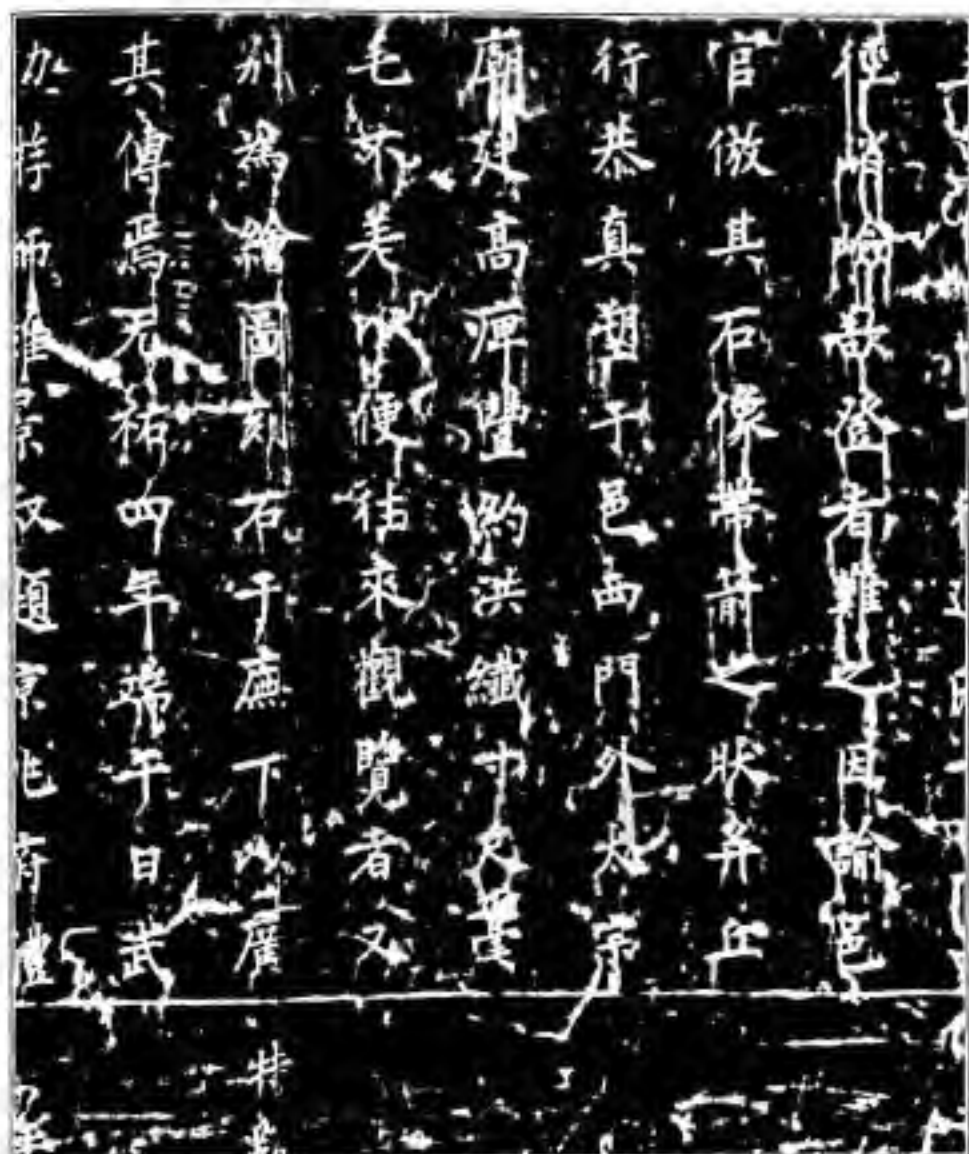 徑峭嶮欲登者難之因諭邑
官倣其石像帶箭之狀并丘
行恭真塑于邑西門外太宗
廟廷高庳豐約洪纖寸尺毫
毛不差以便往來觀覽者又
別為繪圖刻石于廡下以廣
其傳焉元祐四年端午日武
師雄景叔題京兆府醴